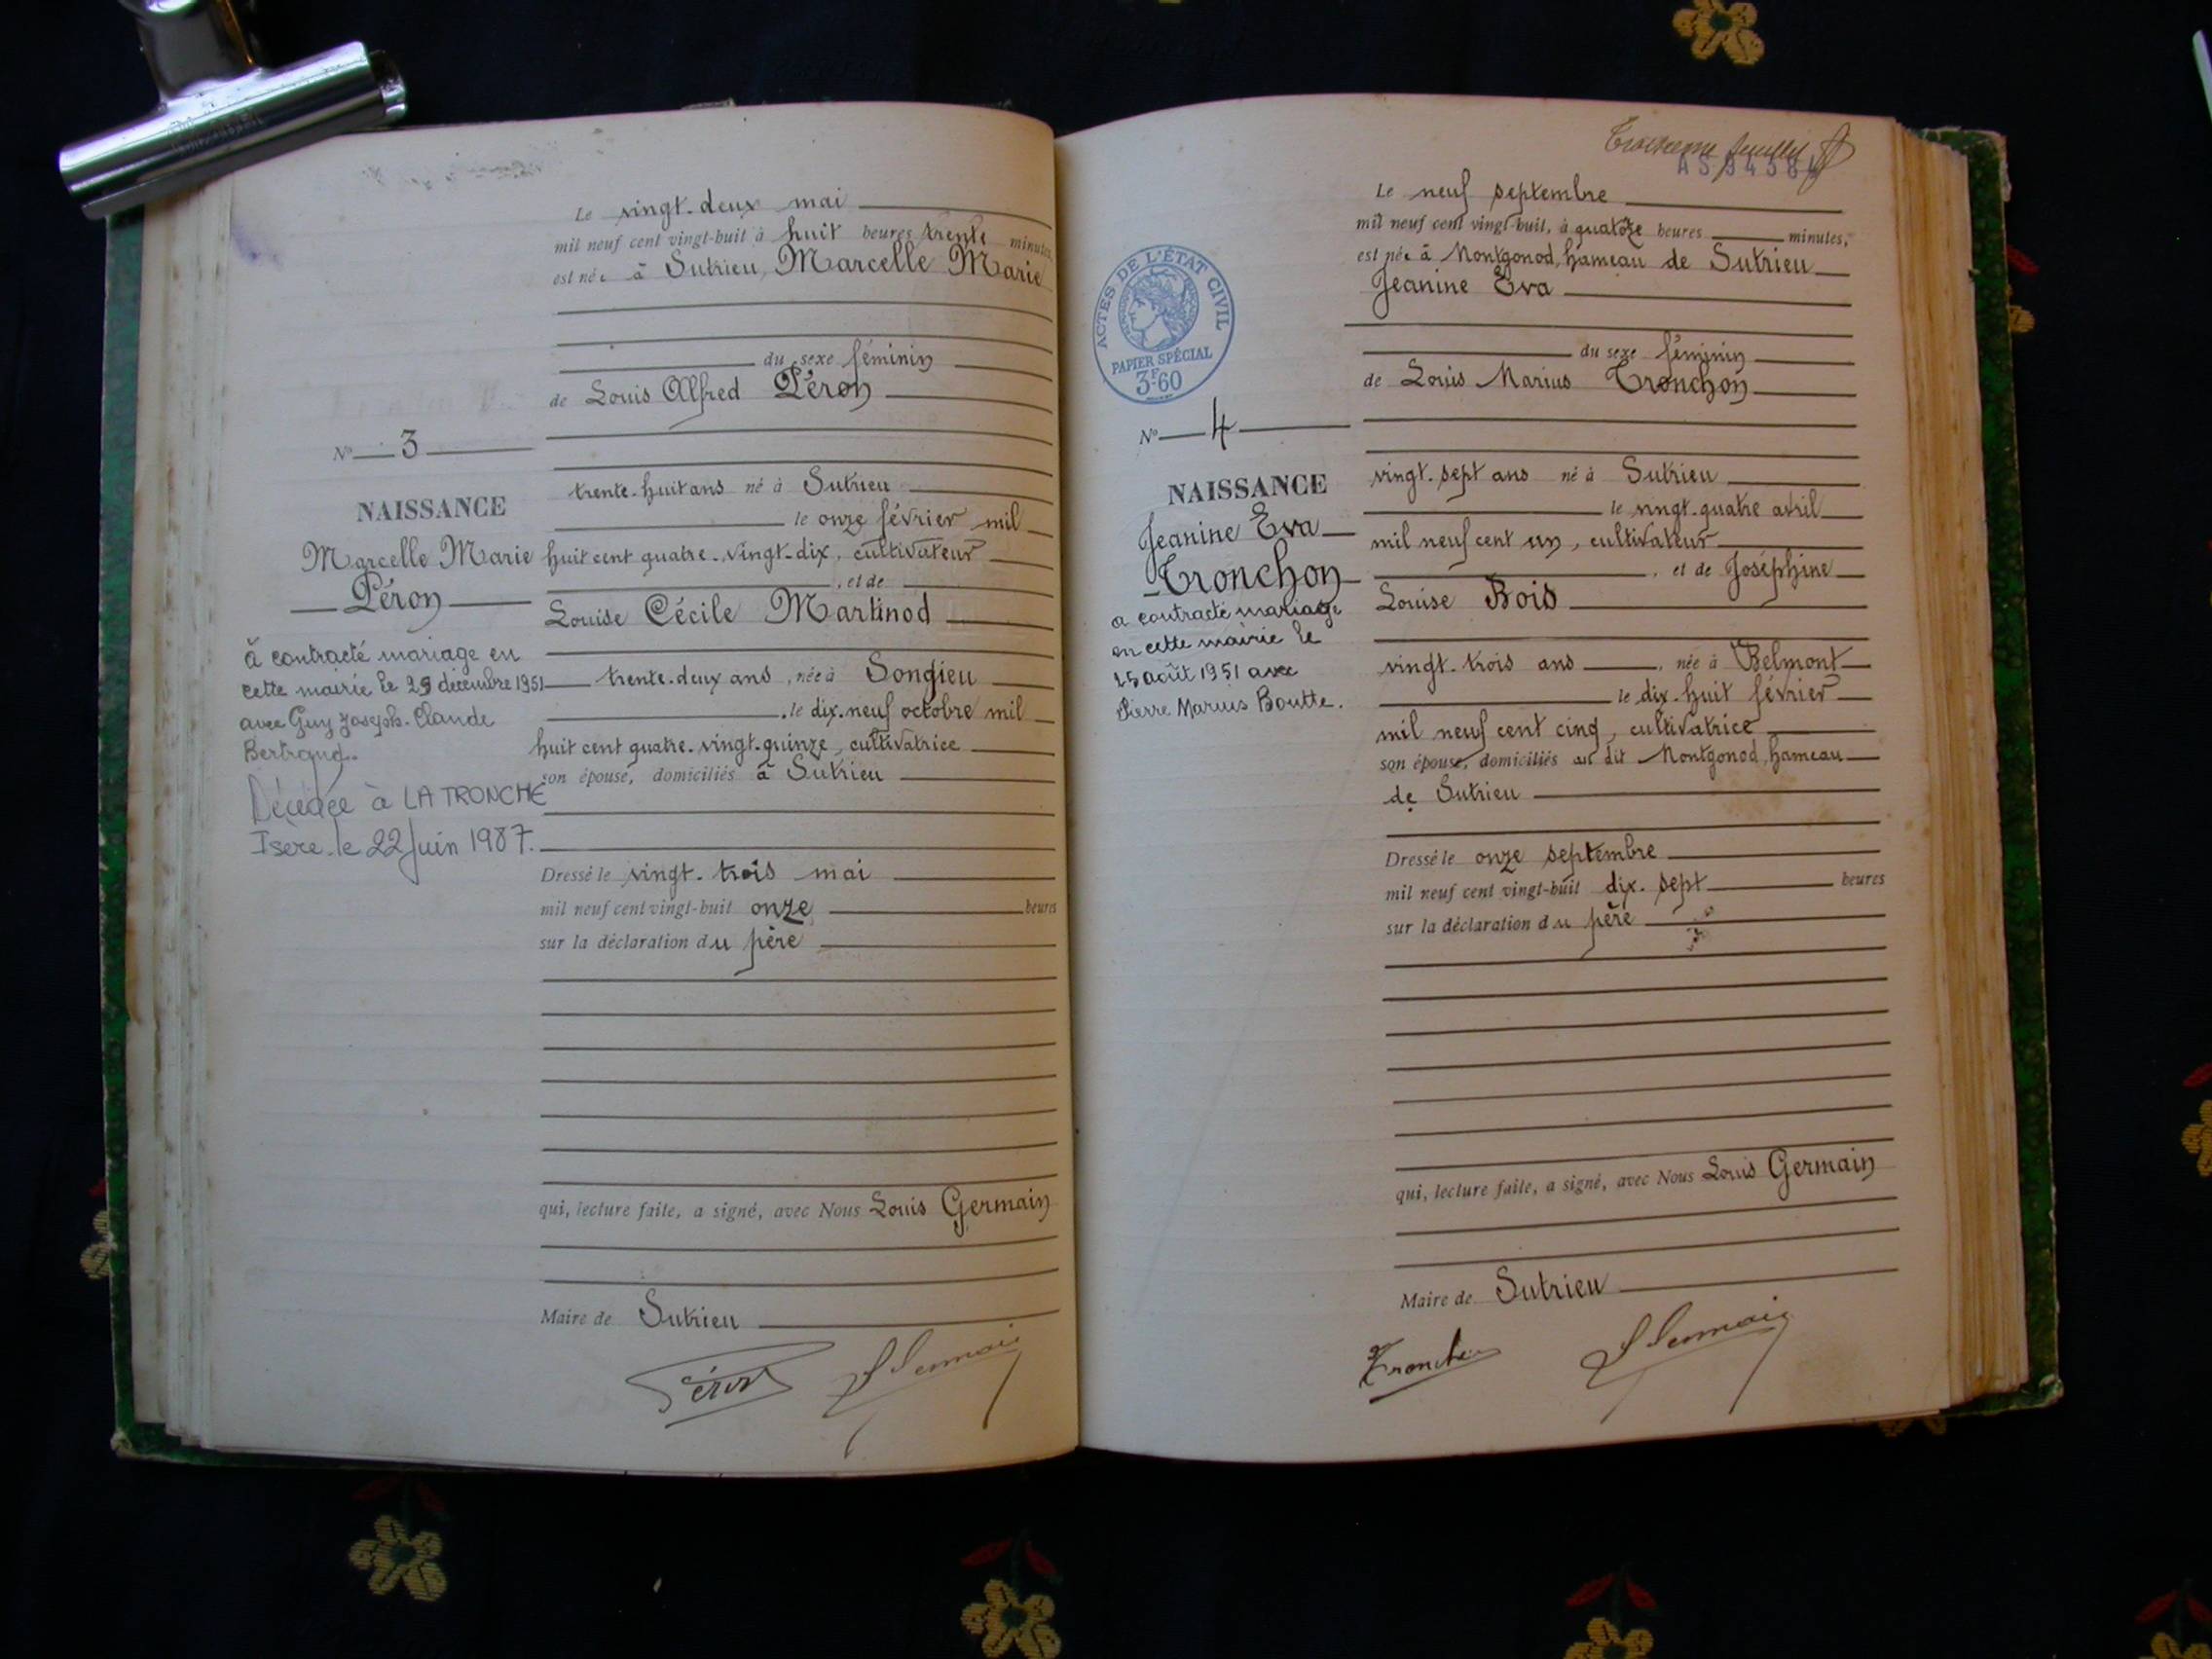 Le vingt-deux mai
mil neuf cent vingt-huit à huit heures trente minutes,
est née à Sutrieu, Marcelle Marie
du sexe féminin
de Louis Alfred Péron
N° 3
trente-huit ans né à Sutrieu
NAISSANCE
le onze février mil
Marcelle Marie
huit cent quatre-vingt-dix, cultivateur
Péron
, et de
Louise Cécile Martinod
à contracté mariage en
cette mairie le 29 décembre 1951
avec Guy Joseph-Claude
Bertrand.
Décédée à LA TRONCHE
Isère le 22 Juin 1987.
trente-deux ans, née à Songieu
, le dix-neuf octobre mil
huit cent quatre-vingt-quinze, cultivatrice
son épouse, domiciliés à Sutrieu
Dressé le vingt-trois mai
mil neuf cent vingt-huit onze heures
sur la déclaration du père
qui, lecture faite, a signé, avec Nous Louis Germain
Maire de Sutrieu
Péron
Troisième feuillet
Le neuf septembre
mil neuf cent vingt-huit, à quatorze heures minutes,
est née à Montgonod, hameau de Sutrieu
Jeanine Eva
ACTES DE L'ÉTAT CIVIL
PAPIER SPÉCIAL
3F60
du sexe féminin
de Louis Marius Tronchon
N° 4
NAISSANCE
Jeanine Eva
Tronchon
a contracté mariage
en cette mairie le
25 août 1951 avec
Pierre Marius Boutte.
vingt-sept ans né à Sutrieu
le vingt-quatre avril
mil neuf cent un, cultivateur
, et de Joséphine
Louise Bois
vingt-trois ans , née à Belmont
le dix-huit février
mil neuf cent cinq, cultivatrice
son épouse, domiciliés au dit Montgonod, hameau
de Sutrieu
Dressé le onze septembre
mil neuf cent vingt-huit dix-sept heures
sur la déclaration du père
qui, lecture faite, a signé, avec Nous Louis Germain
Maire de Sutrieu
Tronchon